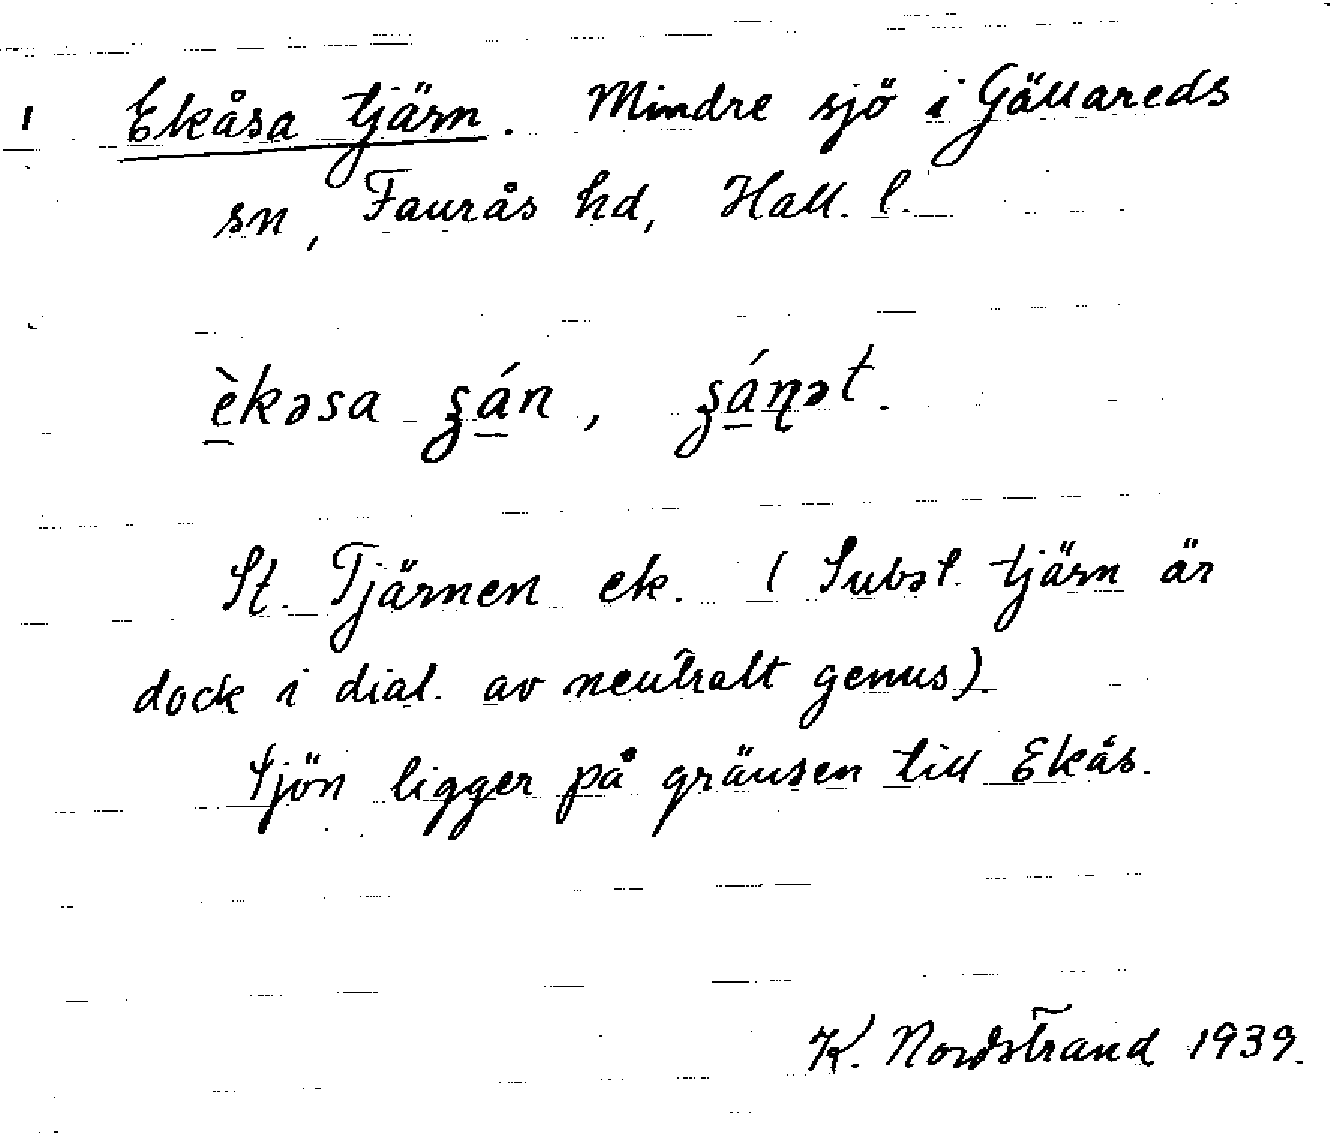 Ekåsa tjärn. Mindre sjö i Gällareds
sn, Faurås hd, Hall. l.
èkəsa ʂán, ʂáɳət.
St. Tjärnen ek. (Subst. tjärn är
dock i dial. av neutralt genus).
Sjön ligger på gränsen till Ekås.
K. Nordstrand 1939.